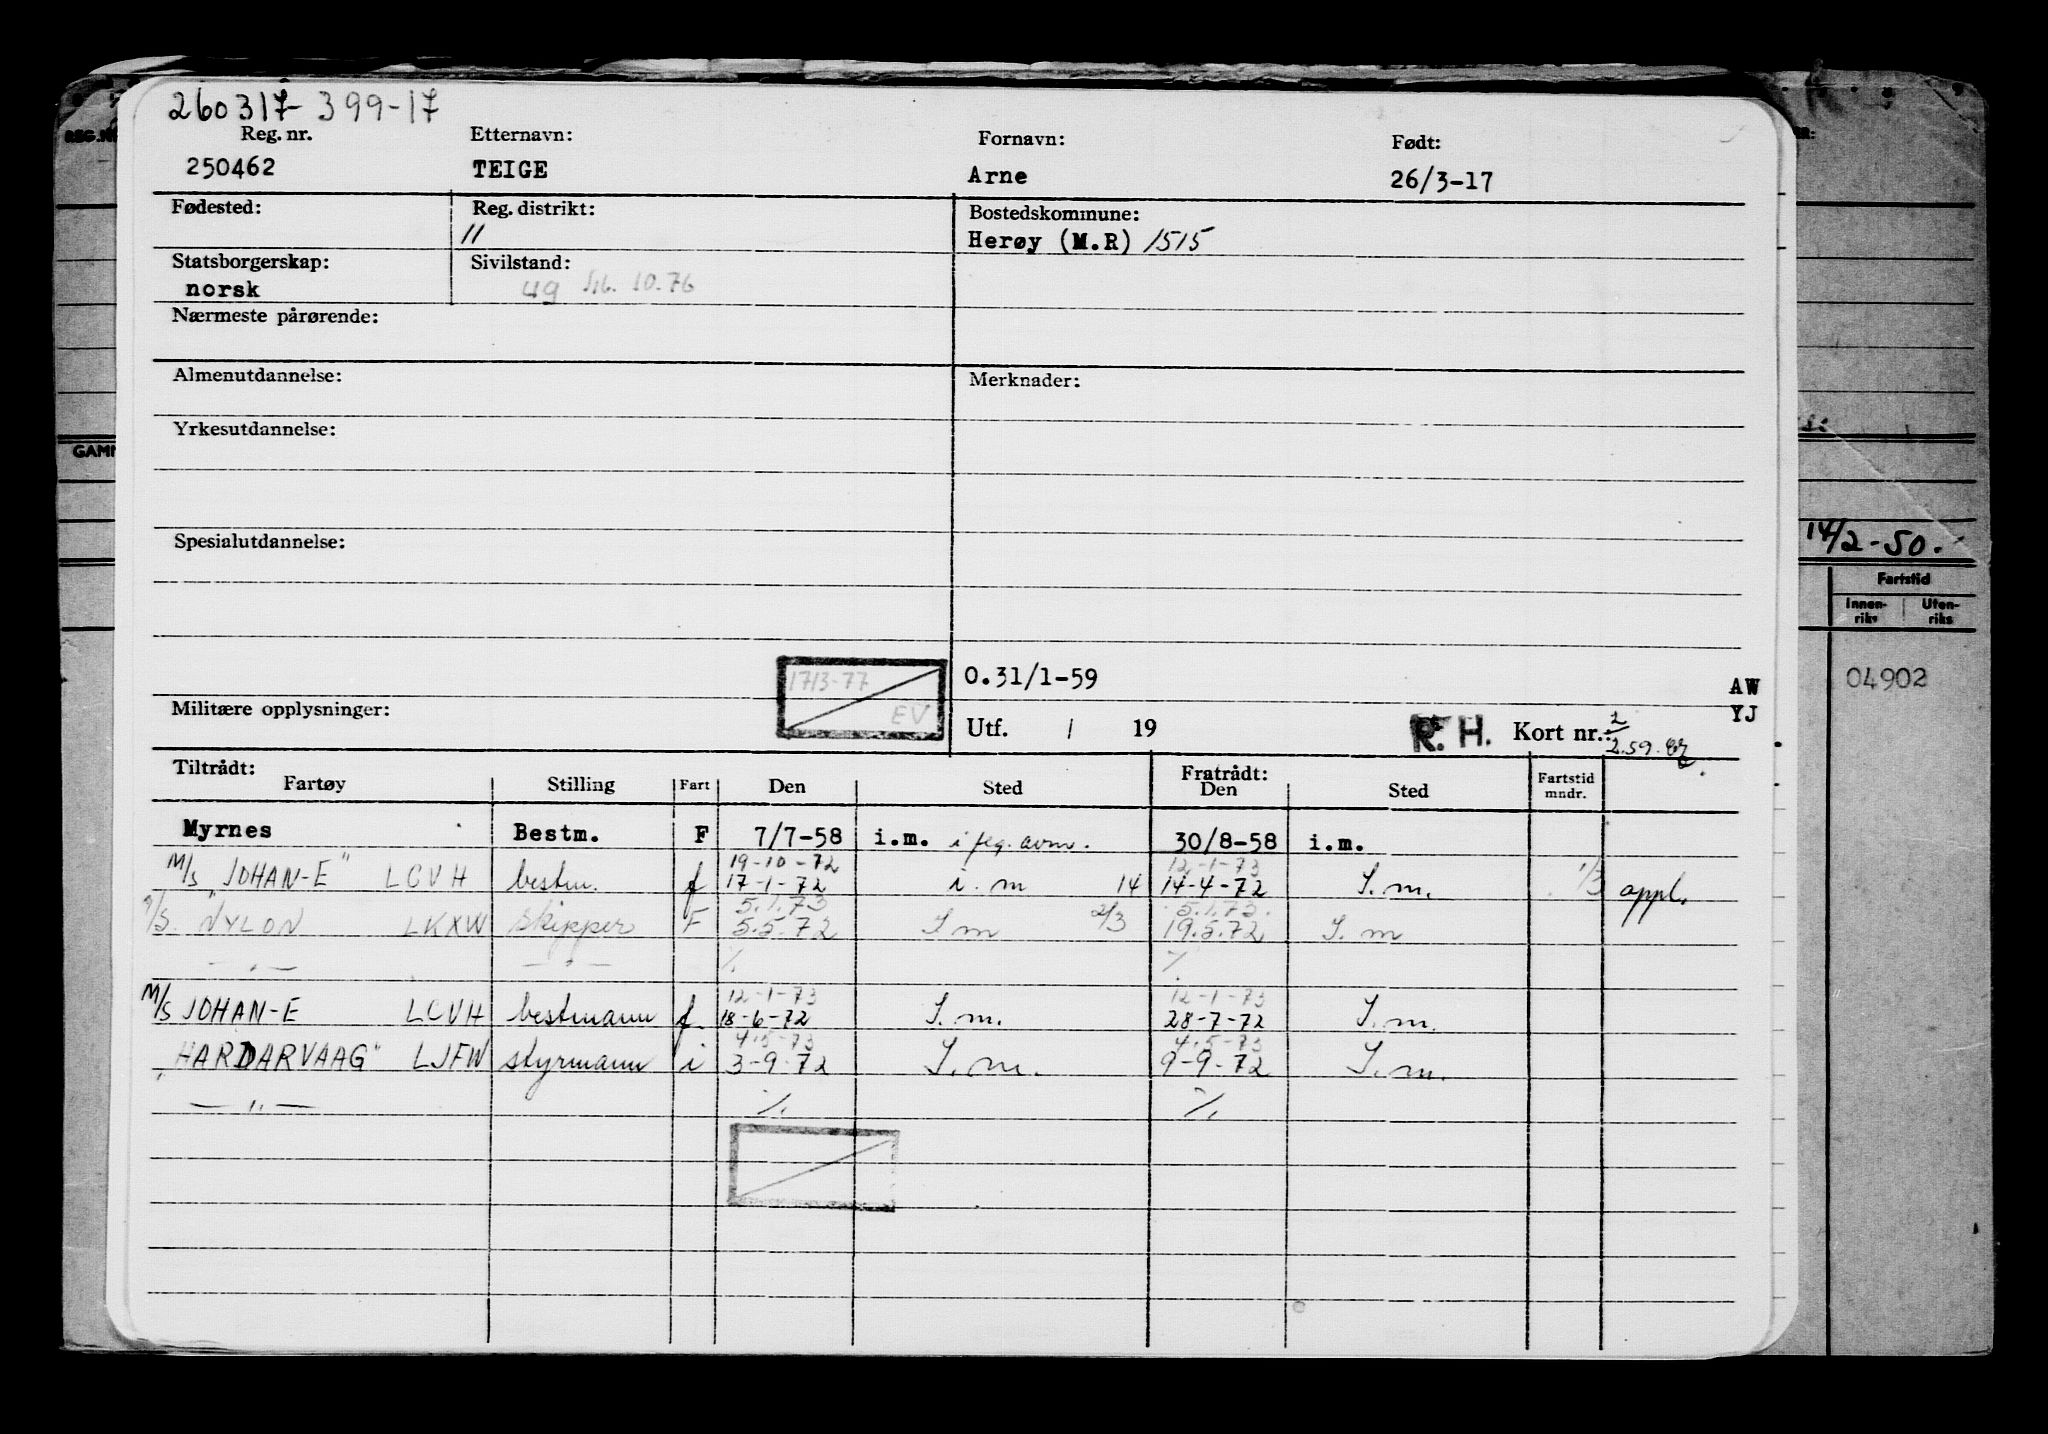 260317-399-17
Reg. nr. Etternavn: Fornavn: Født:
250462 TEIGE Arne 26/3-17
Fødested: Reg. distrikt: Bostedskommune:
11 Herøy (M.R) 1515
Statsborgerskap: Sivilstand:
norsk ug 10.76
Nærmeste pårørende:
Almenutdannelse: Merknader:
Yrkesutdannelse:
Spesialutdannelse:
14/2-50.
Fartstid
Innen-riks Uten-riks
17/3-77 EV
O.31/1-59 AW
04902
Militære opplysninger: Utf. / 19 R.H. Kort nr.: 2 YJ
2.59.
Tiltrådt: Fratrådt:
Fartøy Stilling Fart Den Sted Den Sted Fartstid mndr.
Myrnes Bestm. F 7/7-58 i.m. i flg. avm. 30/8-58 i.m.
19-10-72 12-1-73
M/S "JOHAN-E" LCVH bestm. f 17-1-72 i.m 14 14-4-72 I.m. 1/3 appl.
5.1.73 5.1.73.
M/S. NYLON LKXW skipper F 5.5.72 I m 2/3 19.5.72 I. m
—"— —"— % %
12-1-73 12-1-73
M/S JOHAN-E LCVH bestmann f. 18-6-72 I.m. 28-7-72 I.m.
4.5-73 4.5-73
"HARDARVAAG" LJFW styrmann i 3-9-72 I.m. 9-9-72 I.m.
—"— % %
GAMM